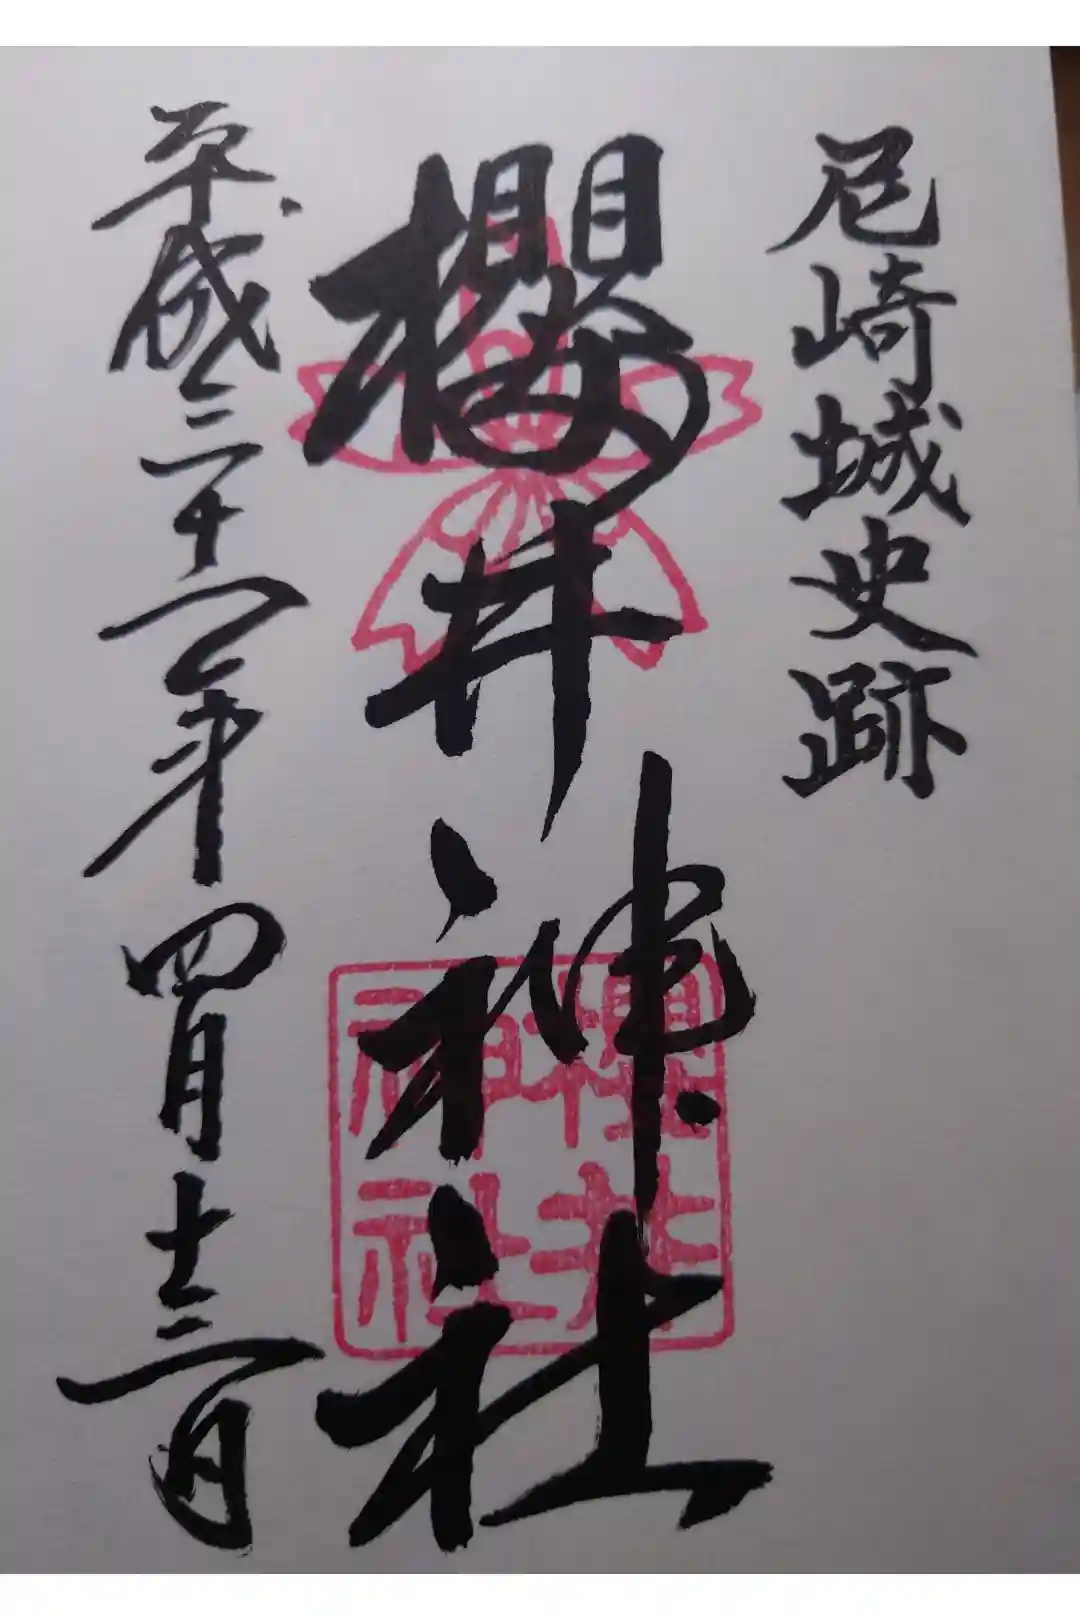 尼崎城史跡
櫻井神社
平成三十一年四月十三日
櫻井
神社